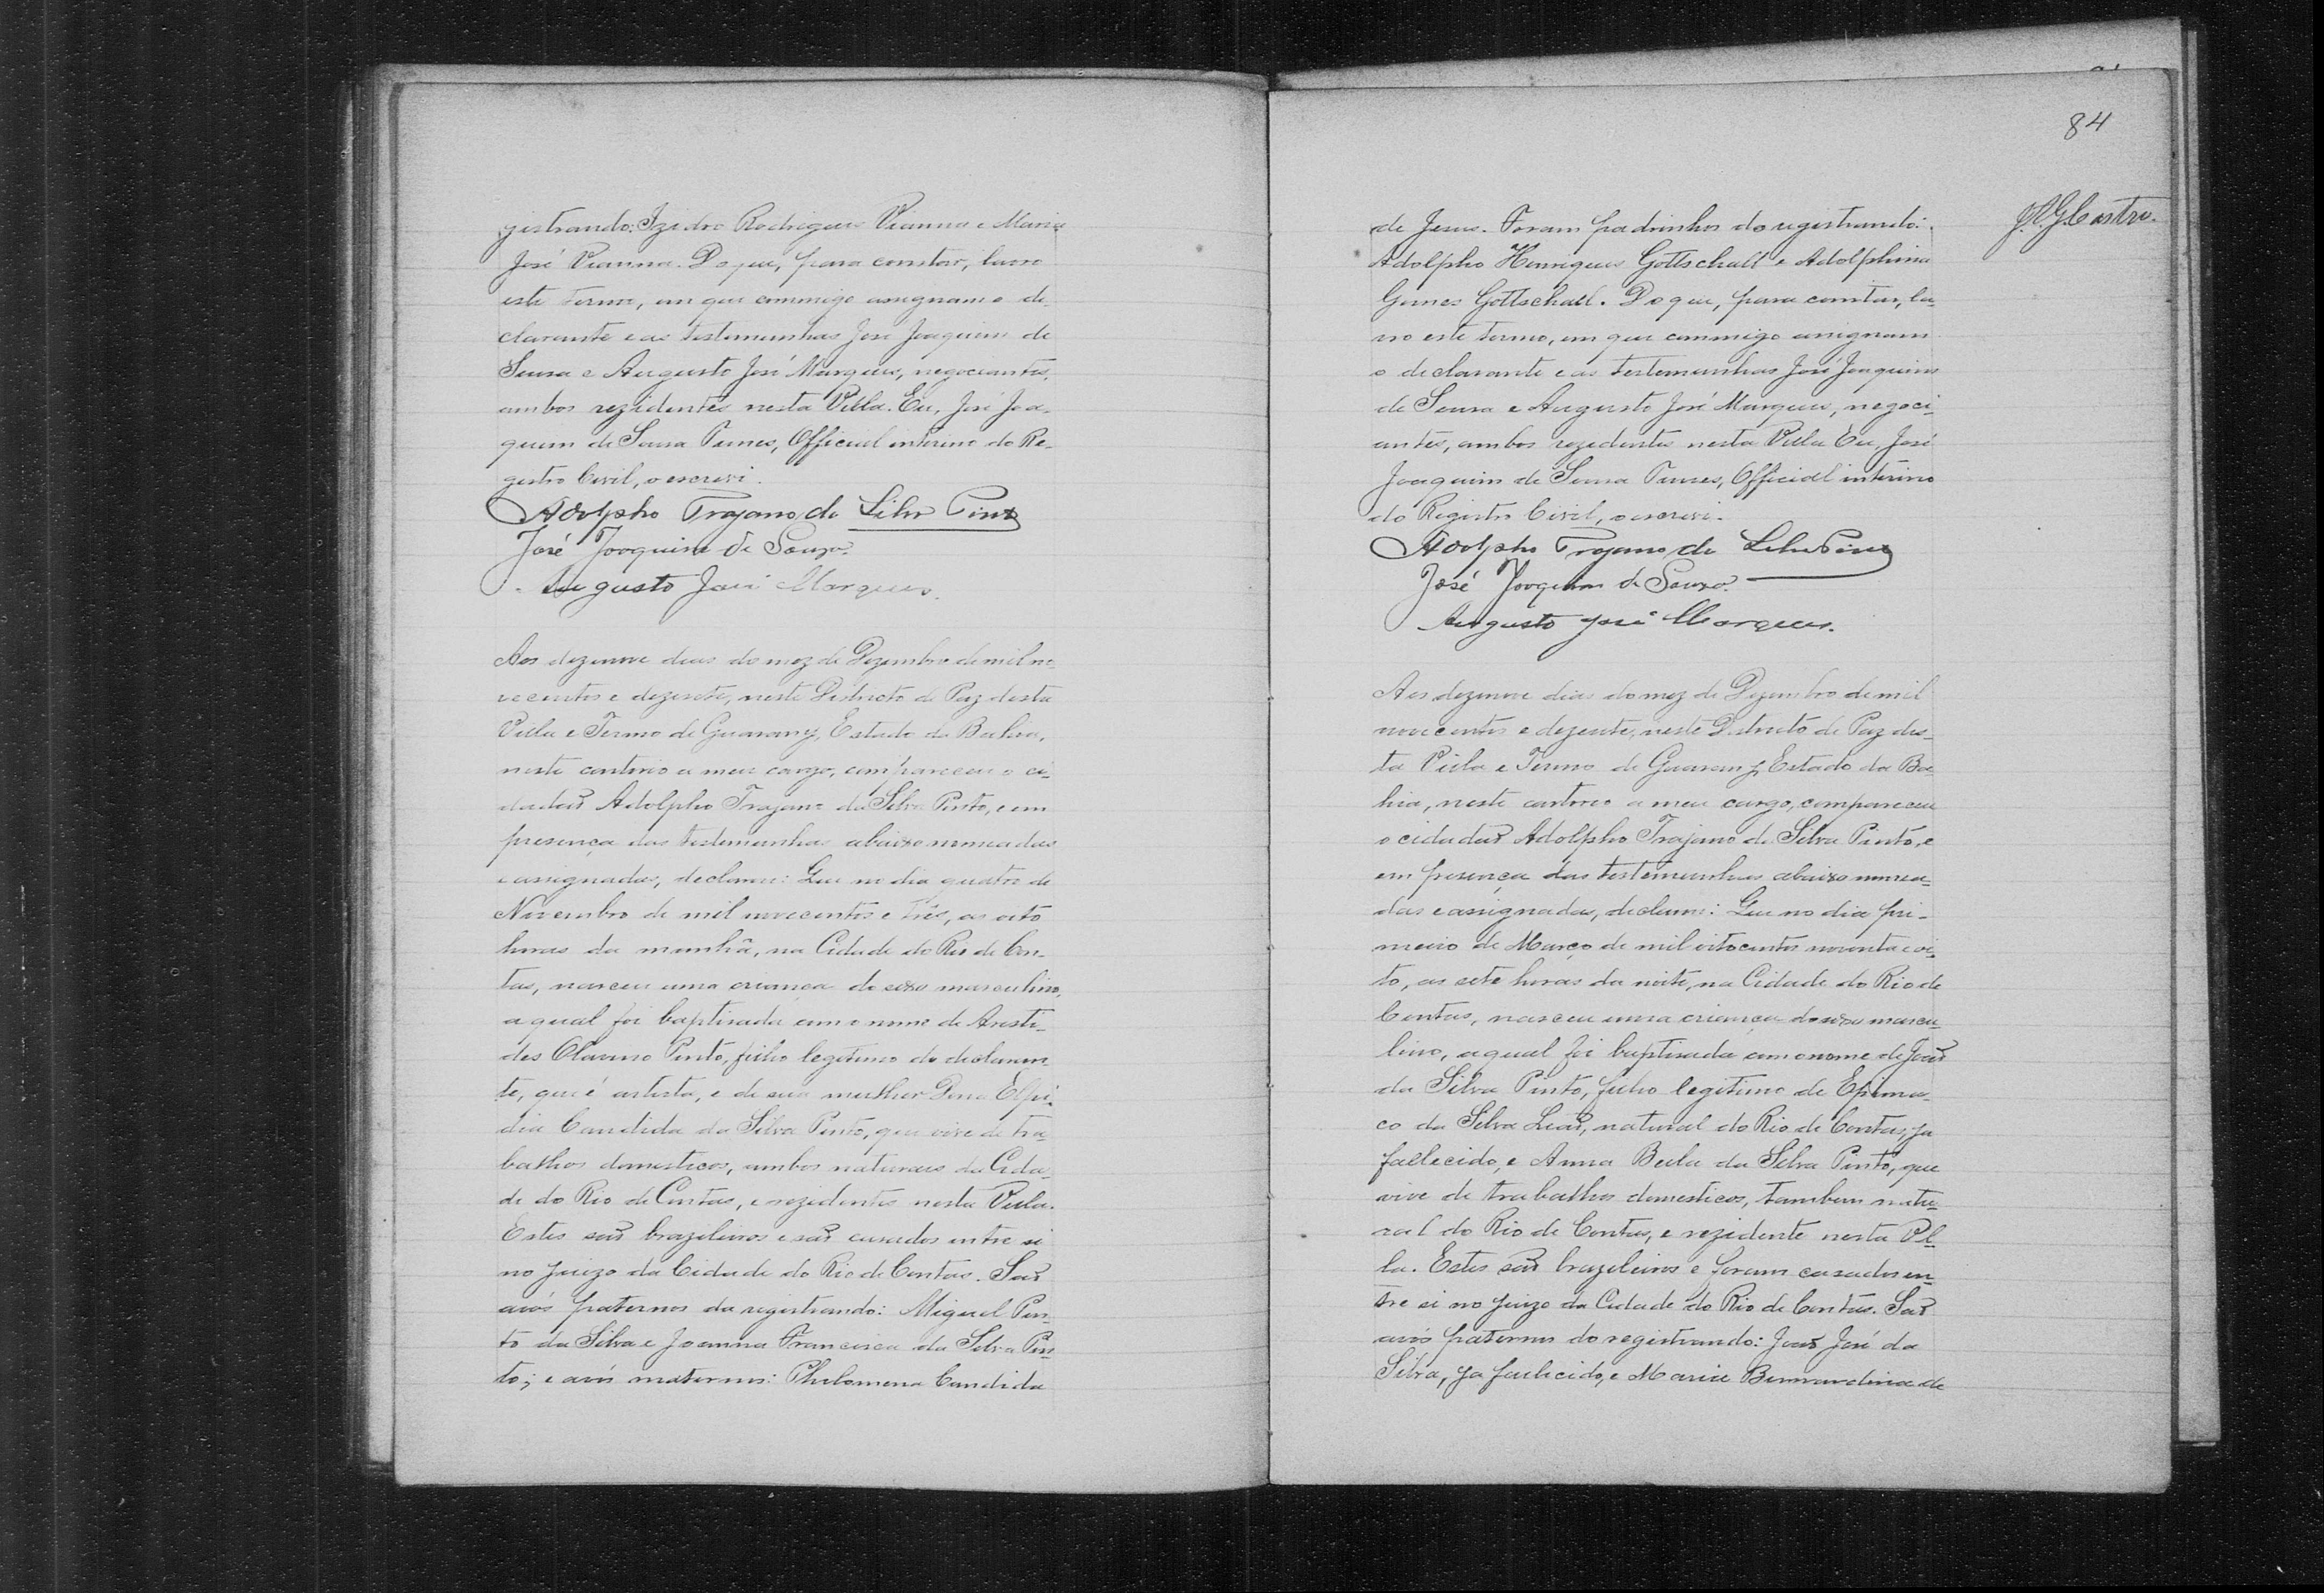 gistrando: Izidro Rodrigues Vianna e Maria
José Vianna. Do que, para constar, lavro
este termo, em que commigo assignam o de-
clarante e as testemunhas José Joaquim de
Sousa e Augusto José Marques, negociantes,
ambos rezidentes nesta Villa. Eu, José Joa-
quim de Sousa Tunes, Official interino do Re-
gistro Civil, o escrevi.
Adolpho Trajano da Silva Pinto
José Joaquim de Souza.
Augusto José Marques.
Aos dezenove dias do mez de Dezembro de mil no-
vecentos e dezesete, neste Districto de Paz desta
Villa e Termo de Guarany, Estado da Bahia,
neste cartorio a meu cargo, compareceu o ci-
dadão Adolpho Trajano da Silva Pinto, e em
presença das testemunhas abaixo nomeadas
e assignadas, declarou: Que no dia quatro de
Novembro de mil novecentos e três, as oito
horas da manhã, na Cidade do Rio de Con-
tas, nasceu uma criança do sexo masculino,
a qual foi baptisada com o nome de Aristi-
des Olavino Pinto, filho legitimo do declaran-
te, que é artista, e de sua mulher Dona Elpi-
dia Candida da Silva Pinto, que vive de tra-
balhos domesticos, ambos naturaes da Cida-
de do Rio de Contas, e rezidentes nesta Villa.
Estes são brazileiros e são casados entre si
no juizo da Cidade do Rio de Contas. São
avós paternos da registrando: Miguel Pin-
to da Silva e Joanna Francisca da Silva Pin-
to; e avós maternos: Philomena Candida
84
de Jesus. Foram padrinhos do registrando:
Adolpho Henriques Gottschall e Adolphina
Gomes Gottschall. Do que, para constar, la-
vro este termo, em que commigo assignam
o declarante e as testemunhas José Joaquim
de Sousa e Augusto José Marques, negoci-
antes, ambos rezidentes nesta Villa. Eu, José
Joaquim de Sousa Tunes, Official interino
do Registro Civil, o escrevi.
Adolpho Trajano da Silva Pinto
José Joaquim de Souza.
Augusto José Marques.
Aos dezenove dias do mez de Dezembro de mil
novecentos e dezesete, neste Districto de Paz des-
ta Villa e Termo de Guarany, Estado da Ba-
hia, neste cartorio a meu cargo, compareceu
o cidadão Adolpho Trajano da Silva Pinto, e
em presença das testemunhas abaixo nomea-
das e assignadas, declarou: Que no dia pri-
meiro de Março de mil oitocentos noventa e oi-
to, as sete horas da noite, na Cidade do Rio de
Contas, nasceu uma criança do sexo mascu-
lino, a qual foi baptisada com o nome de João
da Silva Pinto, filho legitimo de Epima-
co da Silva Leão, natural do Rio de Contas, ja
fallecido, e Anna Bella da Silva Pinto, que
vive de trabalhos domesticos, tambem natu-
ral do Rio de Contas, e rezidente nesta Vil-
la. Estes são brazileiros e foram casados en-
tre si no juizo da Cidade do Rio de Contas. São
avós paternos do registrando: João José da
Silva, ja fallecido, e Maria Bernardina de